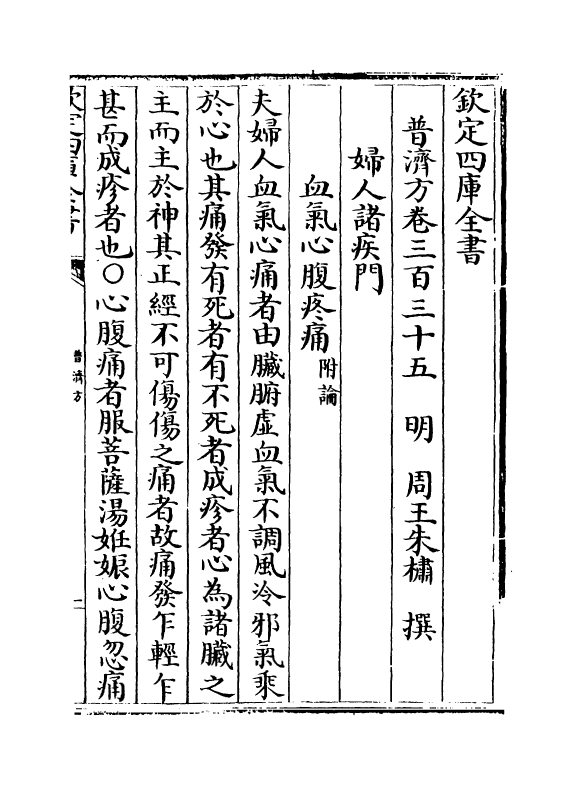 欽定四庫全書
普濟方卷三百三十五　明　周王朱橚　撰
婦人諸疾門
血氣心腹疼痛附論
夫婦人血氣心痛者由臟腑虛血氣不調風冷邪氣乘
於心也其痛發有死者有不死者成疹者心為諸臟之
主而主於神其正經不可傷傷之痛者故痛發乍輕乍
甚而成疹者也〇心腹痛者服菩薩湯姙娠心腹忽痛
欽定四庫全書
普濟方
一